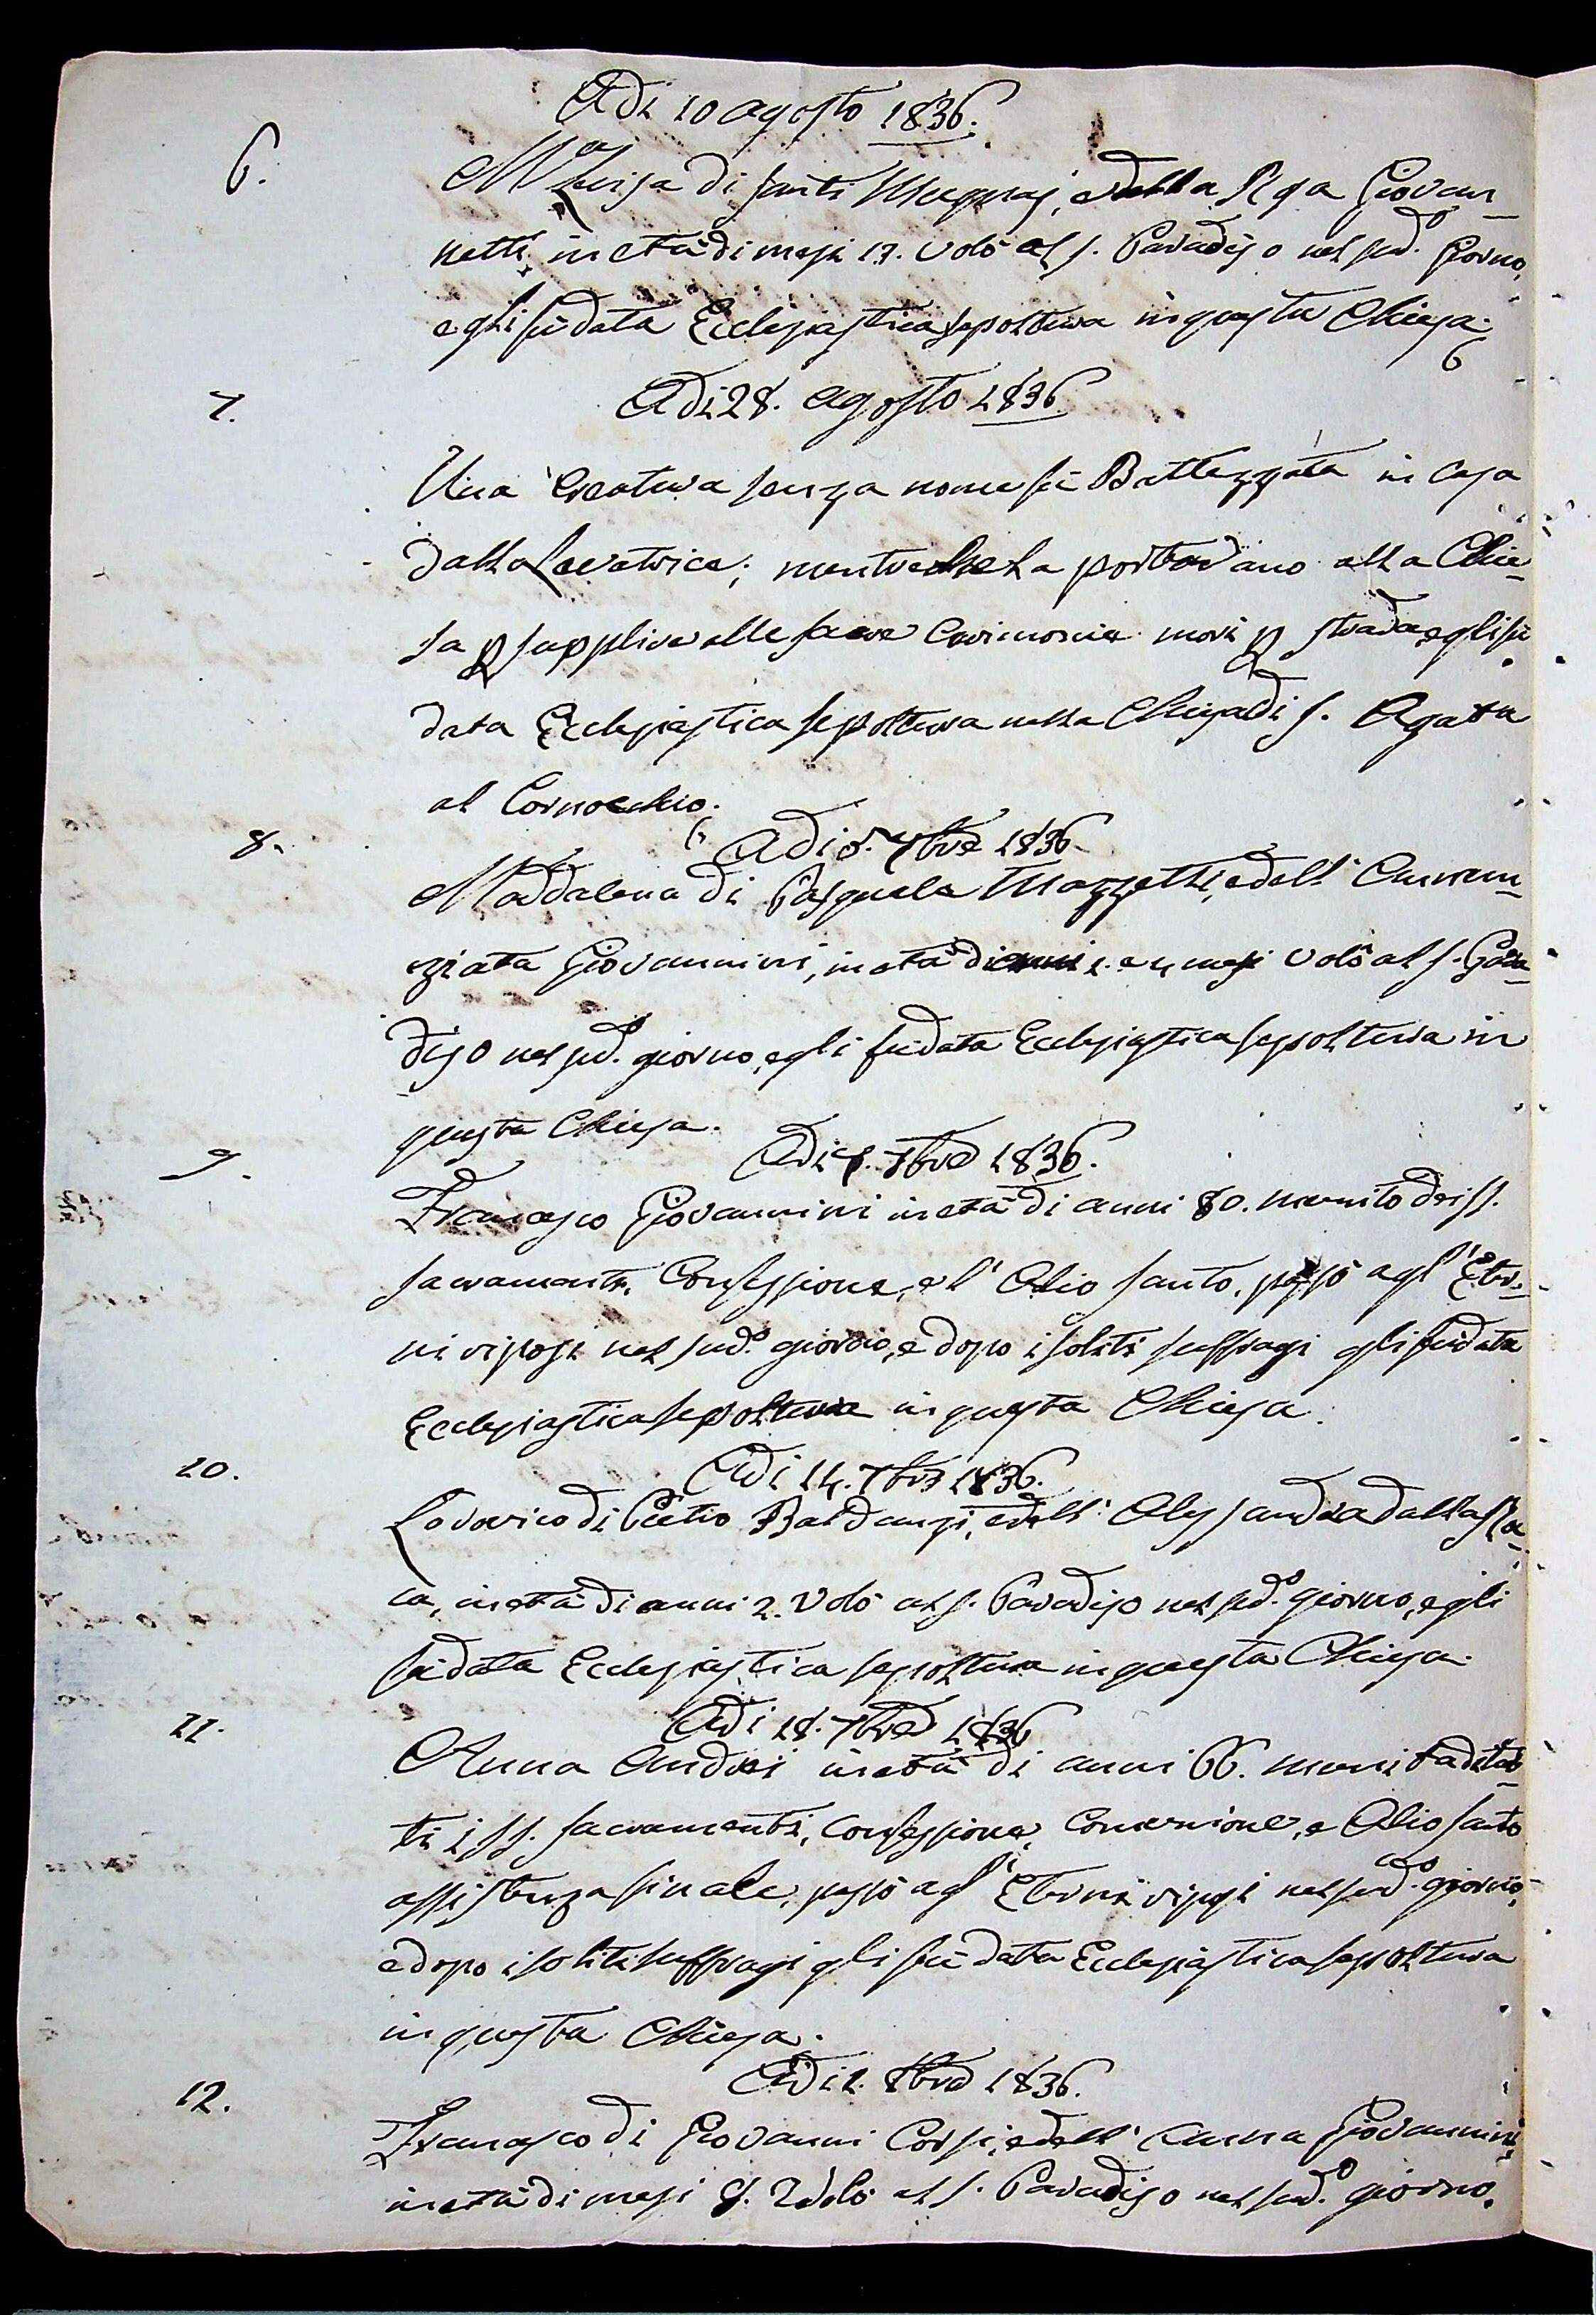 Adi 10 agosto 1836.
6.
Mª Luisa di Santi Mugnaj, e della Rosa Giovan-
netti, in età di mesi 13. Volò al S. Paradiso nel sud.º Giorno,
e gli fù data Ecclesiastica sepoltura in questa Chiesa.
7.
Adi 28. agosto 1836
Una Creatura senza nome fù Battezzata in Casa
dalla Levatrice; mentre che la portavano alla Chie-
sa p supplire alle sacre Cerimonie morì p strada, e gli fù
data Ecclesiastica sepoltura nella Chiesa di S. Agata
al Cornocchio.
8.
Adi 8. 7bre 1836
Maddalena di Pasquale Mazzetti, e dell' Annun-
ziata Giovannini, in età di anni 1. e 4 mesi Volò al S. Para-
diso nel sud.º giorno, e gli fù data Ecclesiastica sepoltura in
questa Chiesa.
9.
Adi 7bre 1836.
Francesco Giovannini in età di anni 80. munito dei SS.
sacramenti, Confessione, e l' Olio santo, passò agl' Eter-
ni riposi nel sud.º giorno, e dopo i soliti suffragi gli fù data
Ecclesiastica sepoltura in questa Chiesa.
10.
Adi 14. 7bre 1836.
Lodovico di Pietro Baldanzi, e dell' Alessandra dalla
in età di anni 2. Volò al S. Paradiso nel sud.º giorno, e gli
fù data Ecclesiastica sepoltura in questa Chiesa.
11.
Adi 18. 7bre 1836
Anna Andrei in età di anni 66. munita di tut-
ti i SS. sacramenti, Confessione, Comunione, e Olio santo
assistenza finale, passò agl' Eterni riposi nel sud.º giorno,
e dopo i soliti suffragi gli fù data Ecclesiastica sepoltura
in questa Chiesa.
12.
Adi 1. 8bre 1836.
Francesco di Giovanni Corsi, e dell' Anna Giovannini,
in età di mesi 8. Volò al S. Paradiso nel sud.º giorno.